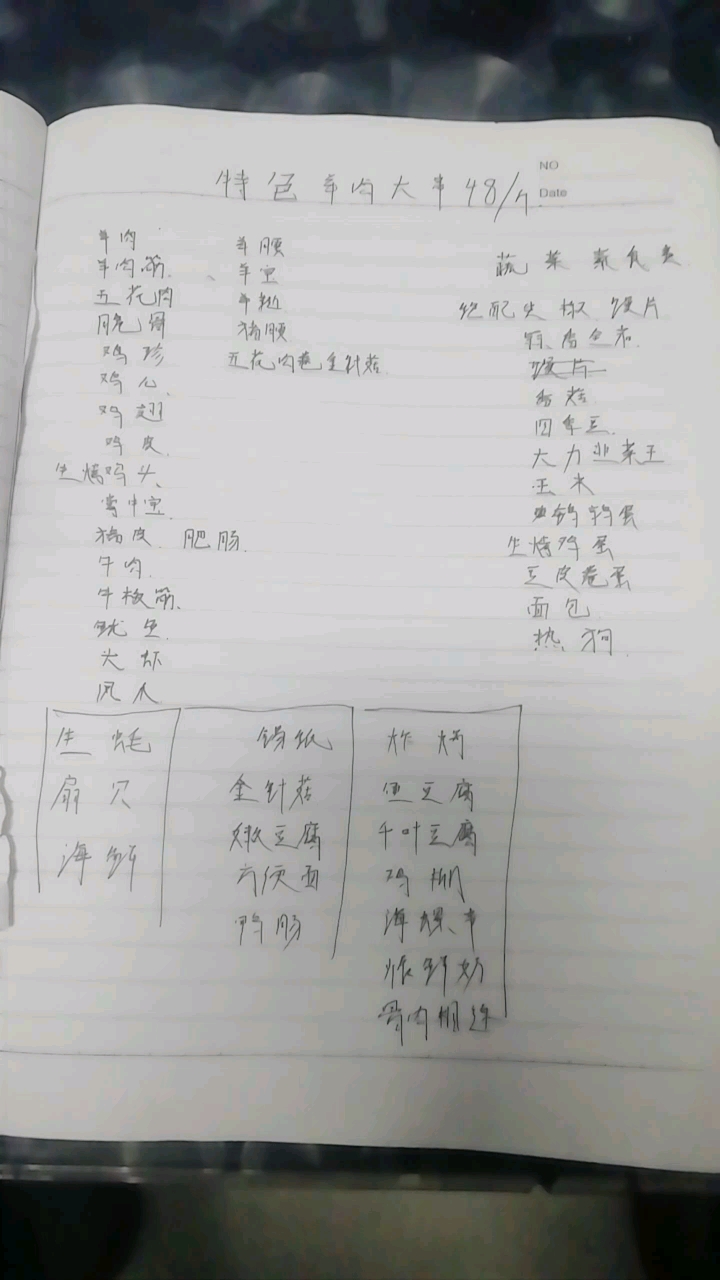 NO
Date
特色羊肉大串48/个
羊肉
羊肉筋
五花肉
脆骨
鸡珍
鸡心
鸡翅
鸡皮
生烤鸡头
掌中宝
猪皮 肥肠
牛肉
牛板筋
鱿鱼
大虾
凤爪
羊腰
羊宝
猪腰
五花肉卷金针菇
蔬菜素食类
绝配尖椒馍片
馍片
香菇
四季豆
大力韭菜王
玉米
鹌鹑蛋
生烤鸡蛋
豆皮卷蛋
面包
热狗
生蚝
扇贝
海鲜
锡纸
金针菇
嫩豆腐
方便面
鸭肠
炸烤
鱼豆腐
千叶豆腐
鸡柳
海螺串
炸鲜奶
骨肉相连